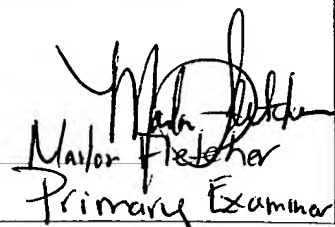 Marlon Fletcher
Primary Examiner